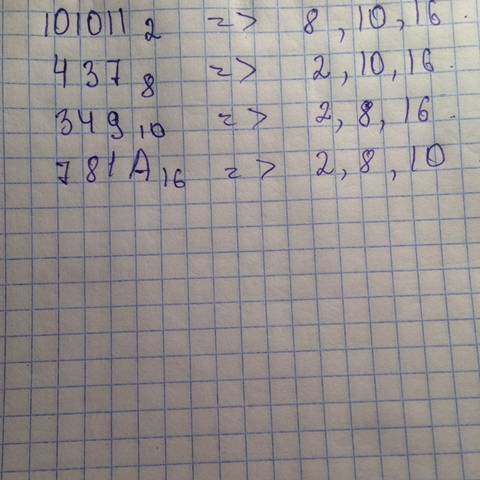 101011₂ => 8, 10, 16.
437₈ => 2, 10, 16.
349₁₀ => 2, 8, 16.
781A₁₆ => 2, 8, 10